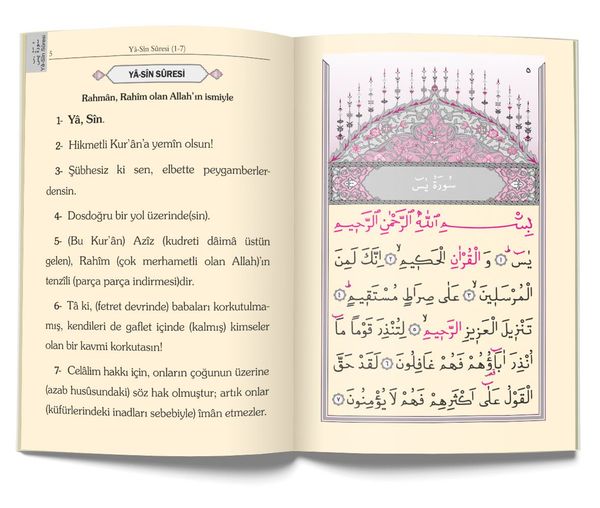 سورة يس
Yâ-Sîn Sûresi
5
Yâ-Sîn Sûresi (1-7)
YÂ-SİN SÛRESİ
Rahmân, Rahîm olan Allah'ın ismiyle
1- Yâ, Sîn.
2- Hikmetli Kur'ân'a yemîn olsun!
3- Şübhesiz ki sen, elbette peygamberler-
densin.
4- Dosdoğru bir yol üzerinde(sin).
5- (Bu Kur'ân) Azîz (kudreti dâimâ üstün
gelen), Rahîm (çok merhametli olan) Allah'ın
tenzîli (parça parça indirmesi)dir.
6- Tâ ki, (fetret devrinde) babaları korkutulma-
mış, kendileri de gaflet içinde (kalmış) kimseler
olan bir kavmi korkutasın!
7- Celâlim hakkı için, onların çoğunun üzerine
(azab husûsundaki) söz hak olmuştur; artık onlar
(küfürlerindeki inadları sebebiyle) îmân etmezler.
٥
سُورَةُ يٰسٓ
بِسْمِ اللّٰهِ الرَّحْمٰنِ الرَّحِيمِ
يٰسٓ ۚ ﴿١﴾ وَ الْقُرْاٰنِ الْحَكِيمِ ۙ ﴿٢﴾ اِنَّكَ لَمِنَ
الْمُرْسَلِينَ ۙ ﴿٣﴾ عَلٰى صِرَاطٍ مُسْتَقِيمٍ ۜ ﴿٤﴾
تَنْزِيلَ الْعَزِيزِ الرَّحِيمِ ۙ ﴿٥﴾ لِتُنْذِرَ قَوْمًا مَٓا
اُنْذِرَ اٰبَٓاؤُهُمْ فَهُمْ غَافِلُونَ ﴿٦﴾ لَقَدْ حَقَّ
الْقَوْلُ عَلٰٓى اَكْثَرِهِمْ فَهُمْ لَا يُؤْمِنُونَ ﴿٧﴾